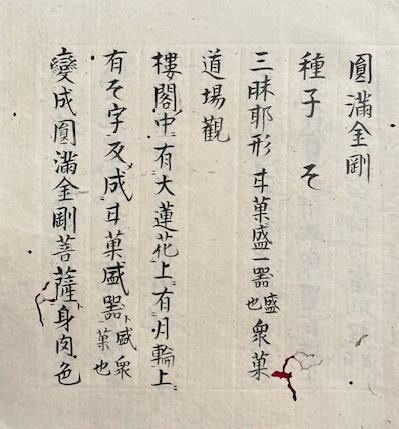 圓滿金剛
種子
三昧耶形 菓盛一器盛衆菓也
道場觀
樓閣中有大蓮花上有月輪上
有 字 成 菓盛器盛衆菓也
變成圓滿金剛菩薩身肉色